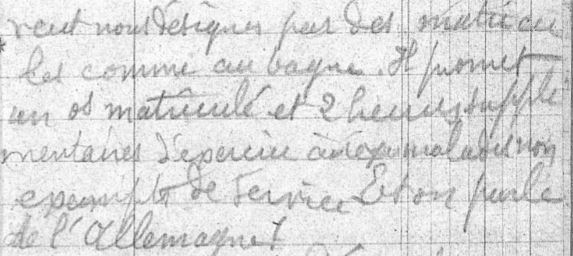 veut nous désigner par des matricu
les comme au bagne. Il promet
un os matriculé et 2 heures supplé
mentaires d'exercice aux malades non
exempts de service Et on parle
de l'Allemagne!